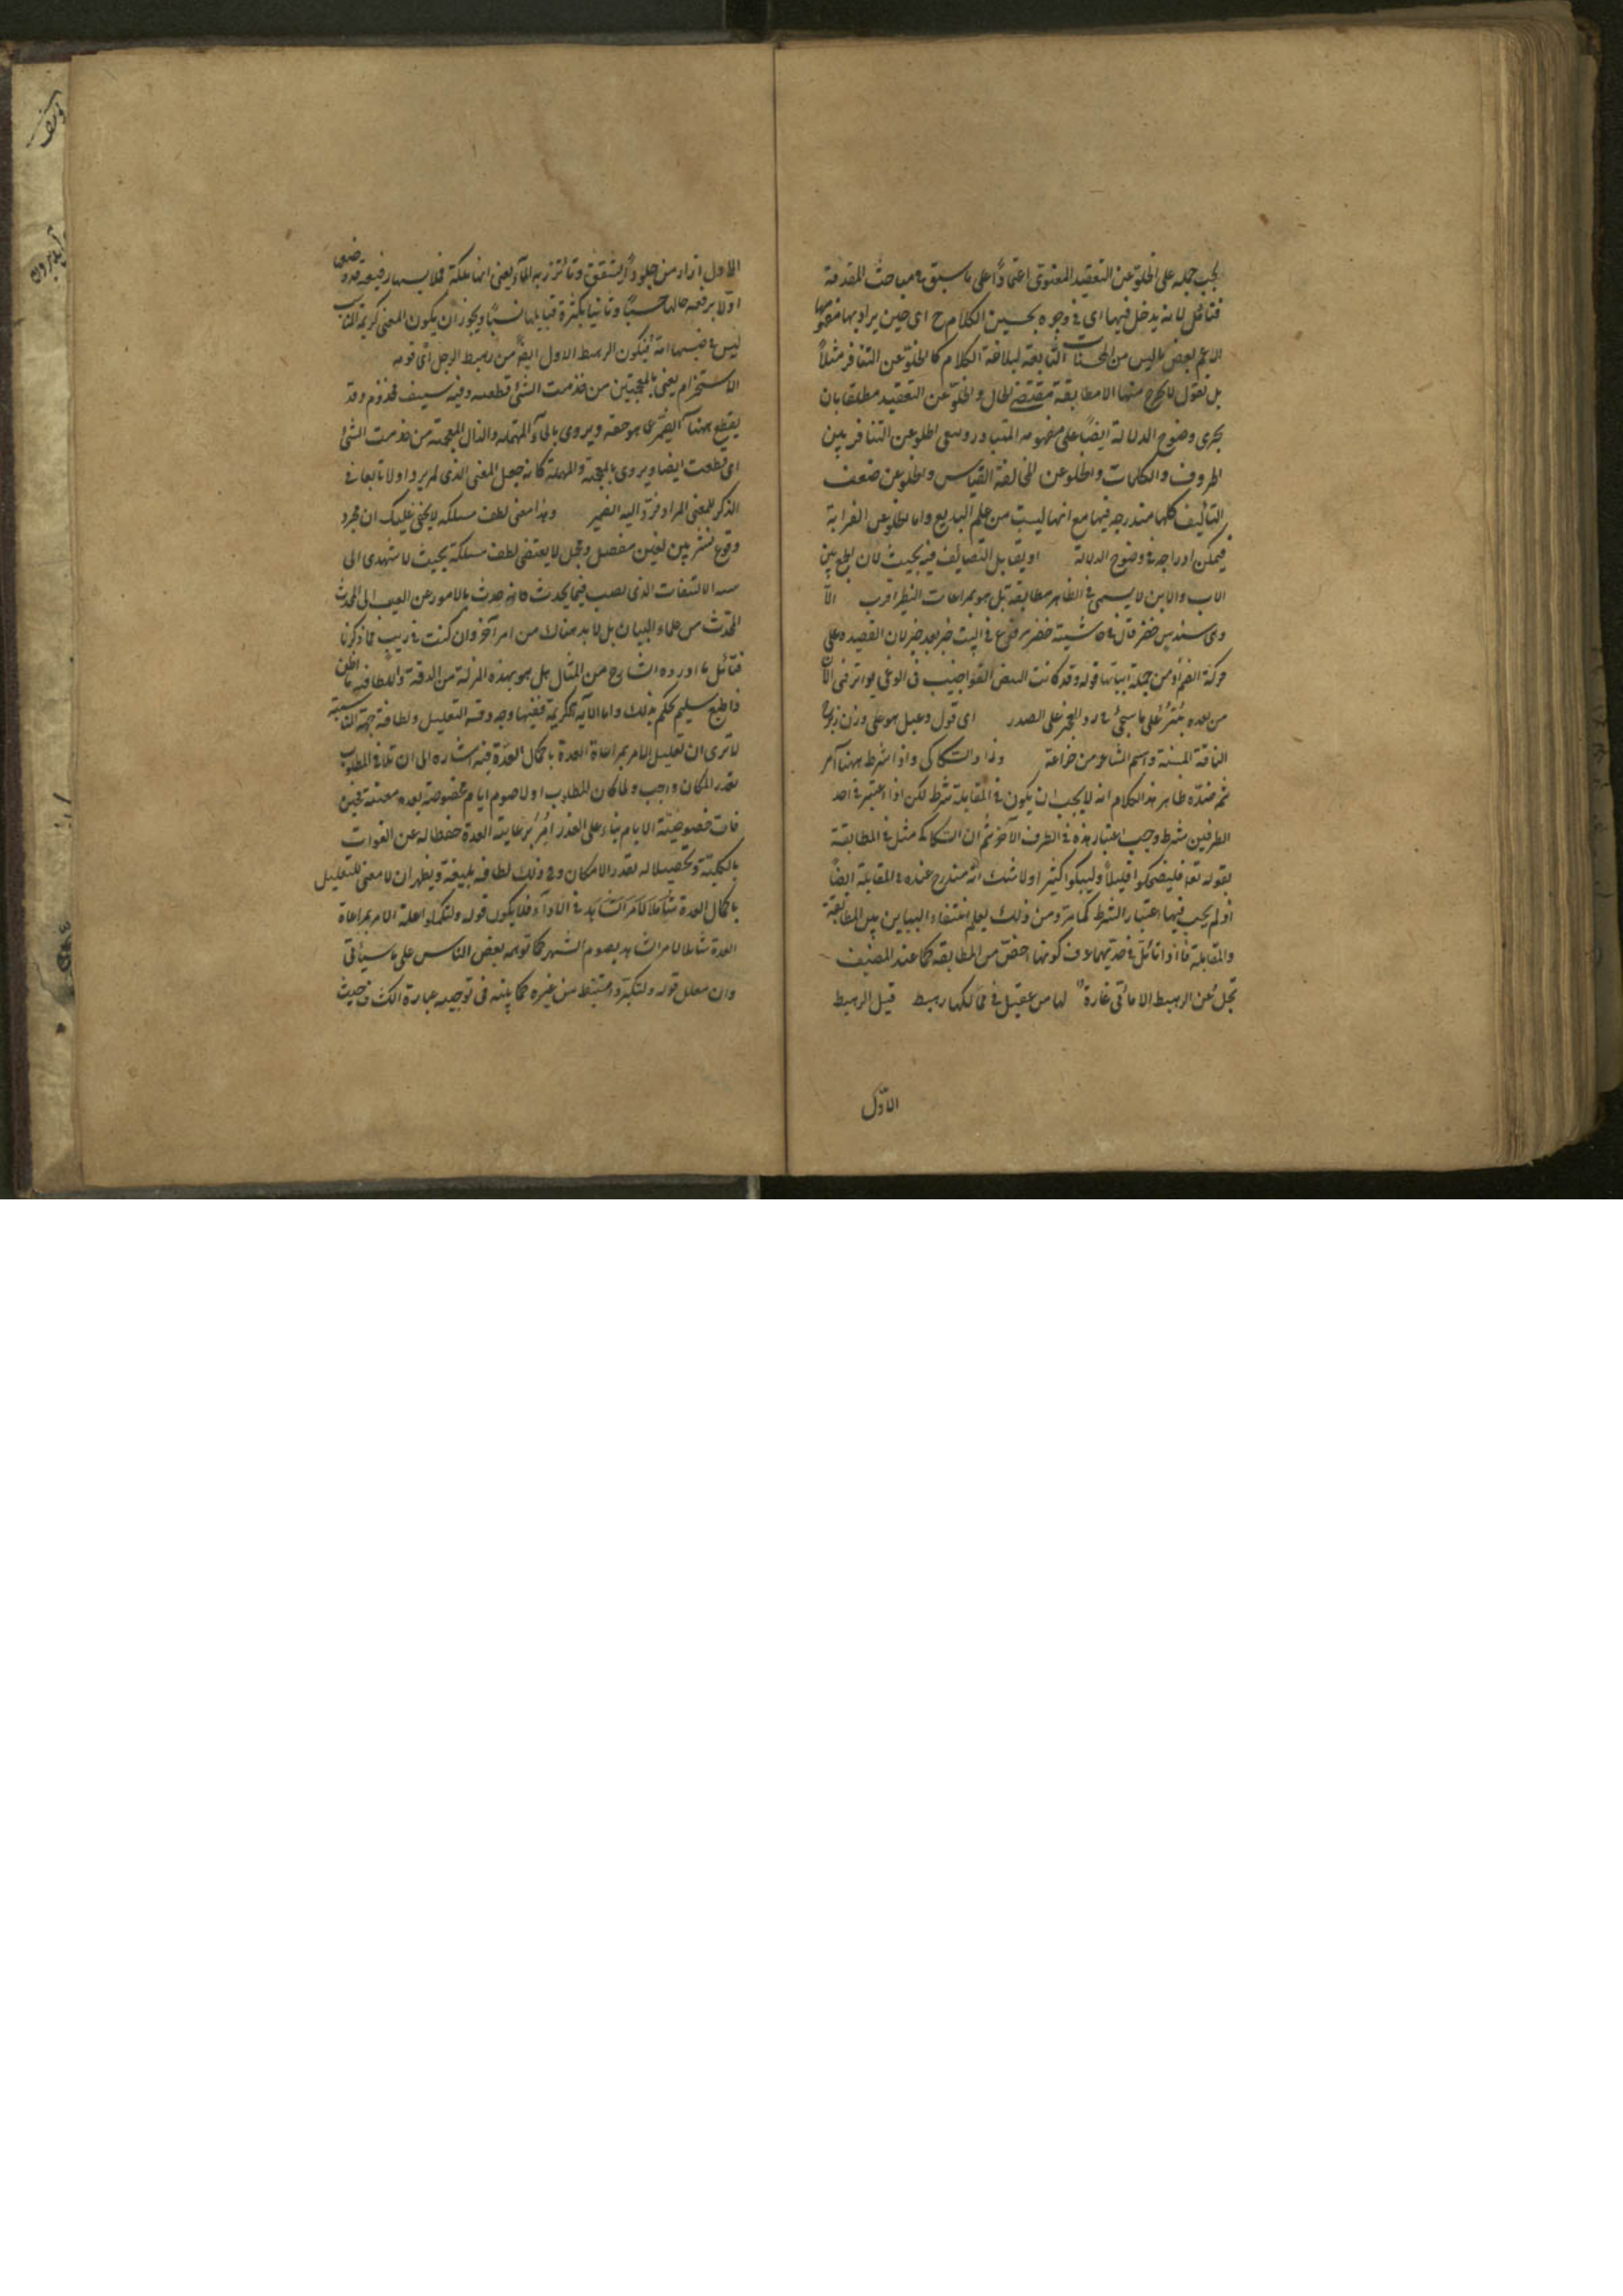 يجب حمله على الخلو عن التعقيد المعنوى اعتمادًا على ما سبق فى مباحث المقدمة
فتأمل لانه يدخل فيها اى فى وجوه تحسين الكلام ح اى حين يراد بها مفهومها
الاعم بعض ما ليس من المحسنات التابعة لبلاغة الكلام كالخلو عن التنافر مثلاً
بل نقول لا يخرج منها الا مطابقة مقتضى الحال والخلو عن التعقيد مطلقا بان
يجرى وضوح الدلالة ايضًا على مفهومه المتبادر ويبقى الخلو عن التنافر بين
الحروف والكلمات والخلو عن مخالفة القياس والخلو عن ضعف
التأليف كلها مندرجه فيها مع انها ليست من علم البديع واما الخلو عن الغرابة
فيمكن ادراجه فى وضوح الدلالة او يقابل التضايف فيه بحيث لان الجمع بين
الاب والابن لا يسمى فى الظاهر مطابقة بل هو بمراعات النظير اقرب الا
وهى سندس خضر قال فى حاشيته خضر مرفوع فى البيت خبر بعد خبر لان القصيده على
حركة الضم ومن جملة ابياتها قوله وقد كانت البيض القواضيب فى الوغى بواتر فهى الآن
من بعده بُترُ على ما سيجئ فى رد العجز على الصدر اى قول دعبل هو على وزن زبرج
الناقة المسنة واسم الشاعر من خزاعة وزاد السكاكى واذا شرط ههنا آمر
ثم ضده ظاهر هذا الكلام انه لا يجب ان يكون فى المقابلة شرط لكن اذا اعتبر فى احد
الطرفين شرط وجب اعتبار ضده فى الطرف الآخر ثم ان السكاكى مثل فى المطابقة
بقوله تعا فليضحكوا قليلاً وليبكوا كثيرا ولا شك انه مندرج عنده فى المقابلة ايضًا
اذ لم يجب فيها اعتبار الشرط كما مر ومن ذلك يعلم انتفاء التباين بين المطابقة
والمقابلة فاذا تأمل فى حديهما عرف كونها اخص من المطابقة كما عند المصنف
تجل عن الرهط الامائى غادة لها من عقيل فى ممالكها رهط قيل الرهط
الاول
الاول ازار من جلود يشقق وتأتزر به الاماء يعنى انها ملكة فلابسها رفيعة قدر وضعى
اولا برفعه حالها حسبًا وثانيا بكثرة قبايلها نسبًا ويجوز ان يكون المعنى كريمة النسب
ليس فى نسبها امة فيكون الرهط الاول ايضًا من رهط الرجل اى قومه
الاستخدام يعنى بالمعجمتين من خذمت الشئ قطعته وفيه سيف مخذوم وقد
يقطع ههنا الضمير عما هو حقه ويروى بالحاء المهملة والذال المعجمة من حذمت الشئ
اى قطعت ايضا ويروى بالمعجمة والمهملة كانه جعل المعنى الذى لم يرد اولا تابعا فى
الذكر للمعنى المراد فرد اليه الضمير وهذا معنى لطف مسلكه لا يخفى عليك ان مجرد
وقوع نشر بين لفين مفصل ومجمل لا يقتضى لطف مسلكه بحيث لا يهتدى الى
الالتفات الذى
المحدث من علماء البيان بل لا بد هناك من امر آخر وان كنت فى ريب مما ذكرنا
فتأمل ما اورده الشارح من المثال هل هو بهذه المنزلة من الدقة واللطافة ما اظن
ذا طبع سليم يحكم بذلك واما الآية الكريمة ففيها وجه دقة التعليل ولطافة جهة المناسبة
الا ترى ان تعليل الامر بمراعاة العدة باكمال العدة فيه اشاره الى ان تلافى المطلوب
بقدر الامكان واجب ولما كان المطلوب اولا صوم ايام مخصوصة بعده معينة فحين
فات خصوصية الايام بناء على العذر اُمِر برعاية العدة حفظا له عن الفوات
بالكلية وتحصيلا له بقدر الامكان وفى ذلك لطافة بليغة ويظهر ان لا معنى لتعليل
باكمال العدة شاملا لامر الشاهد فى الاداء فلا يكون قوله ولتكملوا علة الامر بمراعاة
العدة شاملا لامر الشاهد بصوم الشهر كما توهمه بعض الناس على ما سيأتى
وان معلل قوله ولتكبروا مستنبط من غيره كما بينه فى توجيه عبارة الكشاف حيث